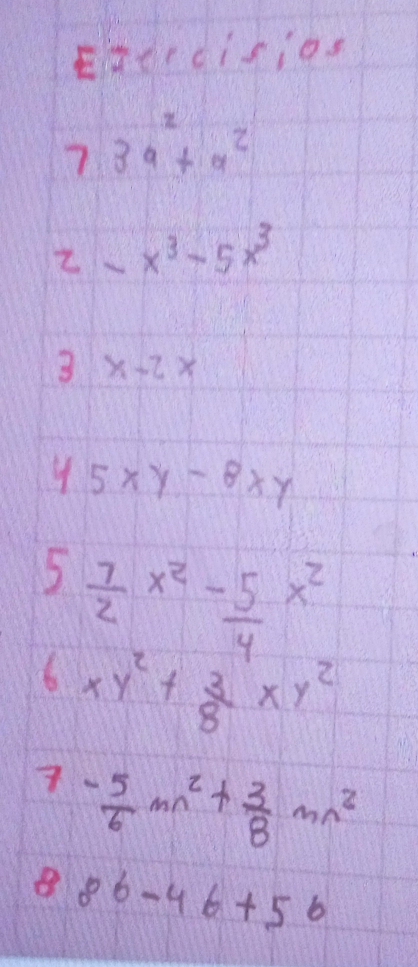 Ejercisios
1 3a² + a²
2 -x³ - 5x³
3 x - 2x
4 5xy - 8xy
5 7/2 x² - 5/4 x²
6 xy² + 3/8 xy²
7 -5/6 mn² + 3/8 mn²
8 8b - 4b + 5b